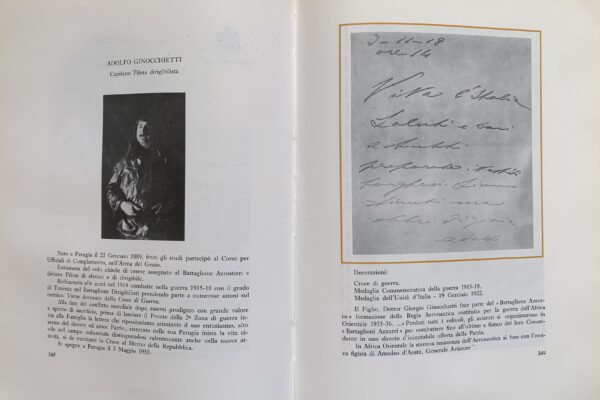 ADOLFO GINOCCHIETTI
Capitano Pilota dirigibilista
Nato a Perugia il 22 Gennaio 1889, finiti gli studi partecipò al Corso per
Ufficiali di Complemento, nell'Arma del Genio.
Entusiasta del volo chiede di essere assegnato al Battaglione Aerostieri e
diviene Pilota di sferico e di dirigibile.
Richiamato alle armi nel 1914 combatte nella guerra 1915-18 con il grado
di Tenente nel Battaglione Dirigibilisti prendendo parte a numerose azioni sul
nemico. Viene decorato della Croce di Guerra.
Alla fine del conflitto mondiale dopo essersi prodigato con grande valore
e spirito di sacrificio, prima di lasciare il Fronte della 2ª Zona di guerra in-
via alla Famiglia la lettera che riproduciamo attestante il suo entusiasmo, alto
senso del dovere ed amor Patrio; mentre nella sua Perugia inizia la vita ci-
vile nel campo industriale distinguendosi valentemente anche nella nuova at-
tività, sì da meritarsi la Croce al Merito della Repubblica.
Si spegne a Perugia il 3 Maggio 1955.
348
3-11-18
ore 14
Viva l'Italia
Saluti e baci
a tutti
preparate
Decorazioni:
Croce di guerra.
Medaglia Commemorativa della guerra 1915-18.
Medaglia dell'Unità d'Italia - 19 Gennaio 1922.
Il Figlio, Dottor Giorgio Ginocchietti fece parte del « Battaglione Azzur-
ro » formazione della Regia Aeronautica costituita per la guerra dell'Africa
Orientale 1935-36. ...« Perduti tutti i velivoli, gli aviatori si organizzarono in
« Battaglioni Azzurri » per combattere fino all'ultimo a fianco del loro Coman-
dante in uno slancio d'inimitabile offerta della Patria.
« In Africa Orientale la strenua resistenza dell'Aeronautica si fuse con l'eroi-
ca figura di Amedeo d'Aosta, Generale Aviatore ".
349